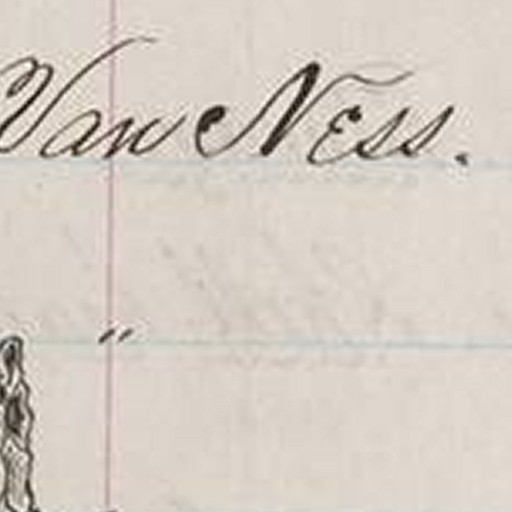 Van Ness.
"